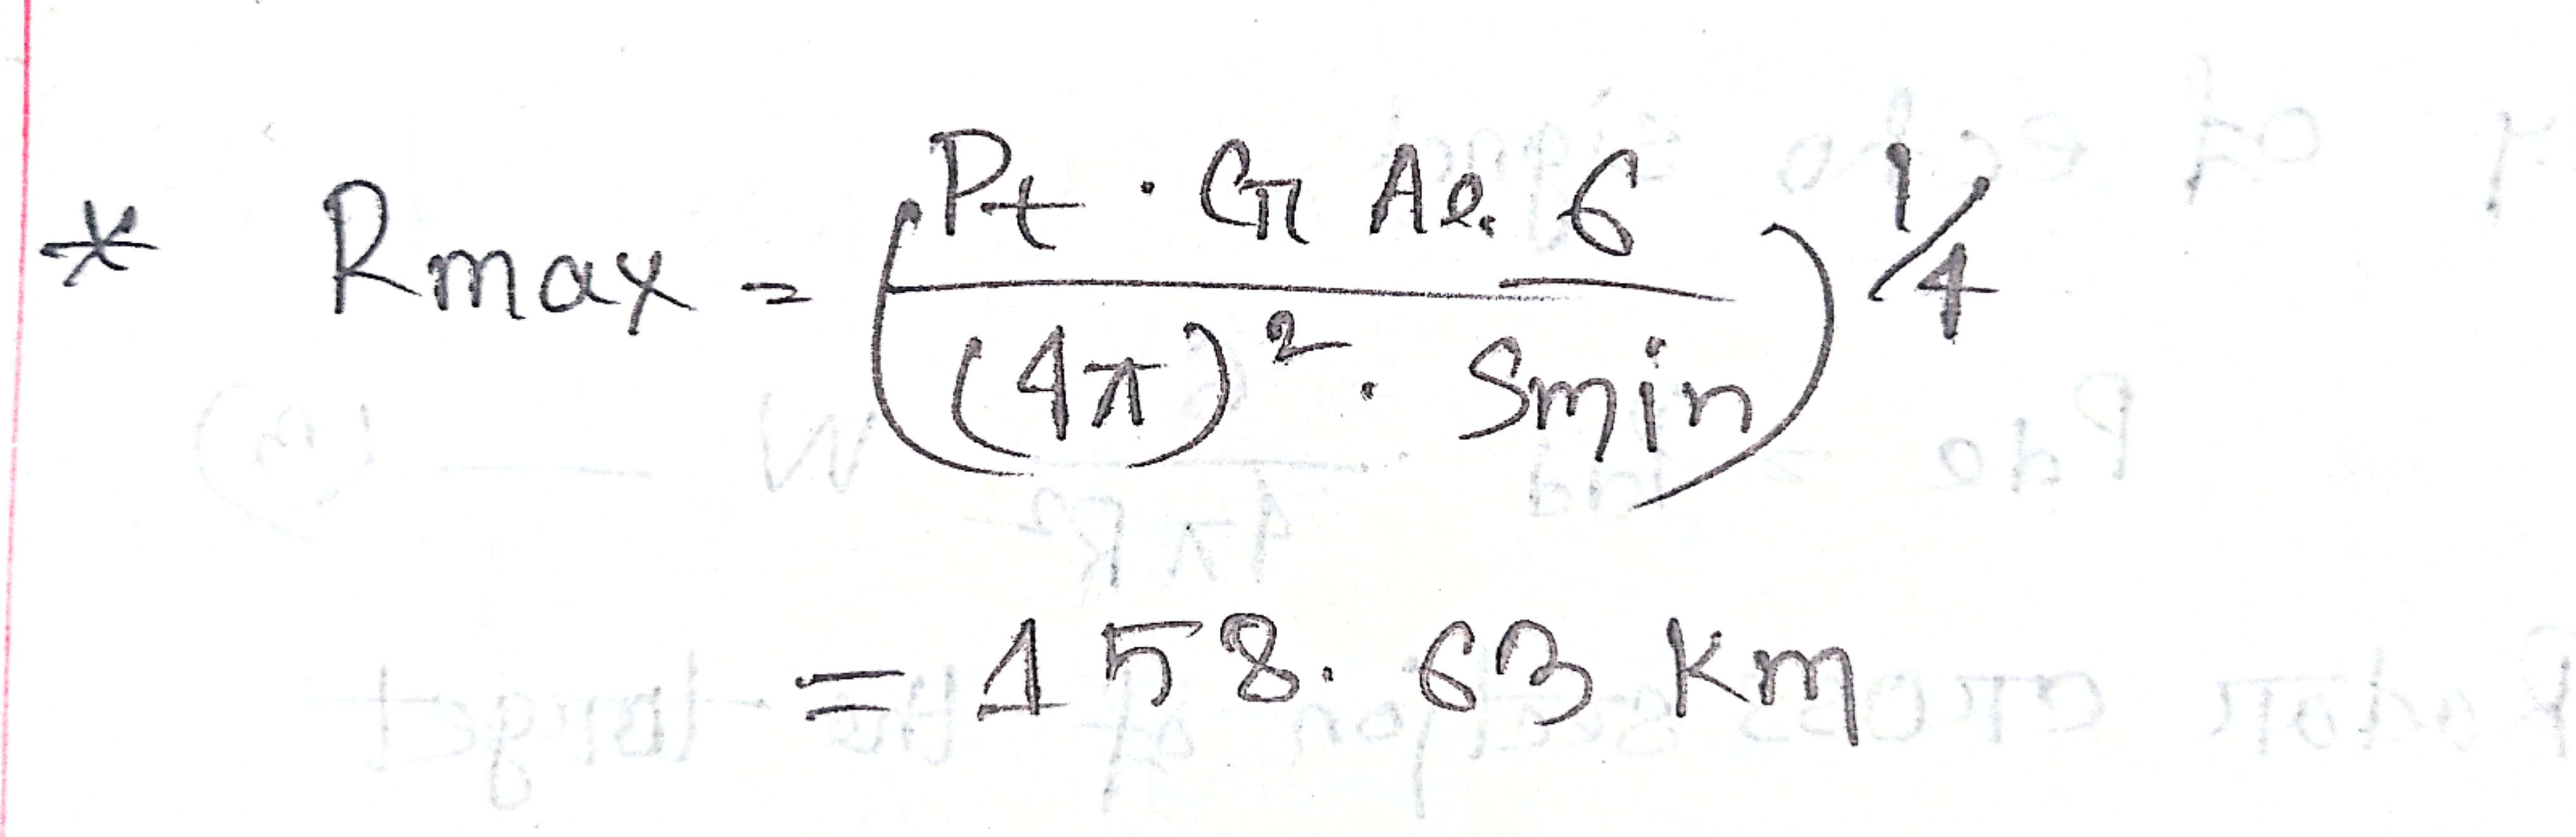 * Rmax = (Pt · G Ae. 6 / (4π)² · Smin)^1/4
= 158.63 Km